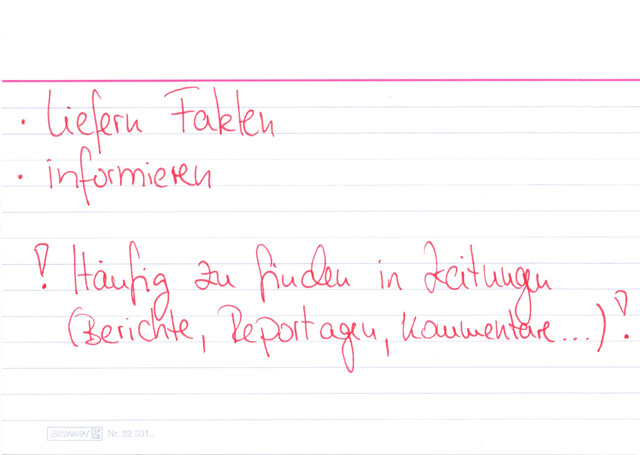 · liefern Fakten
· informieren
! Häufig zu finden in Zeitungen
(Berichte, Reportagen, Kommentare...) !
BRUNNEN Nr. 22 601..